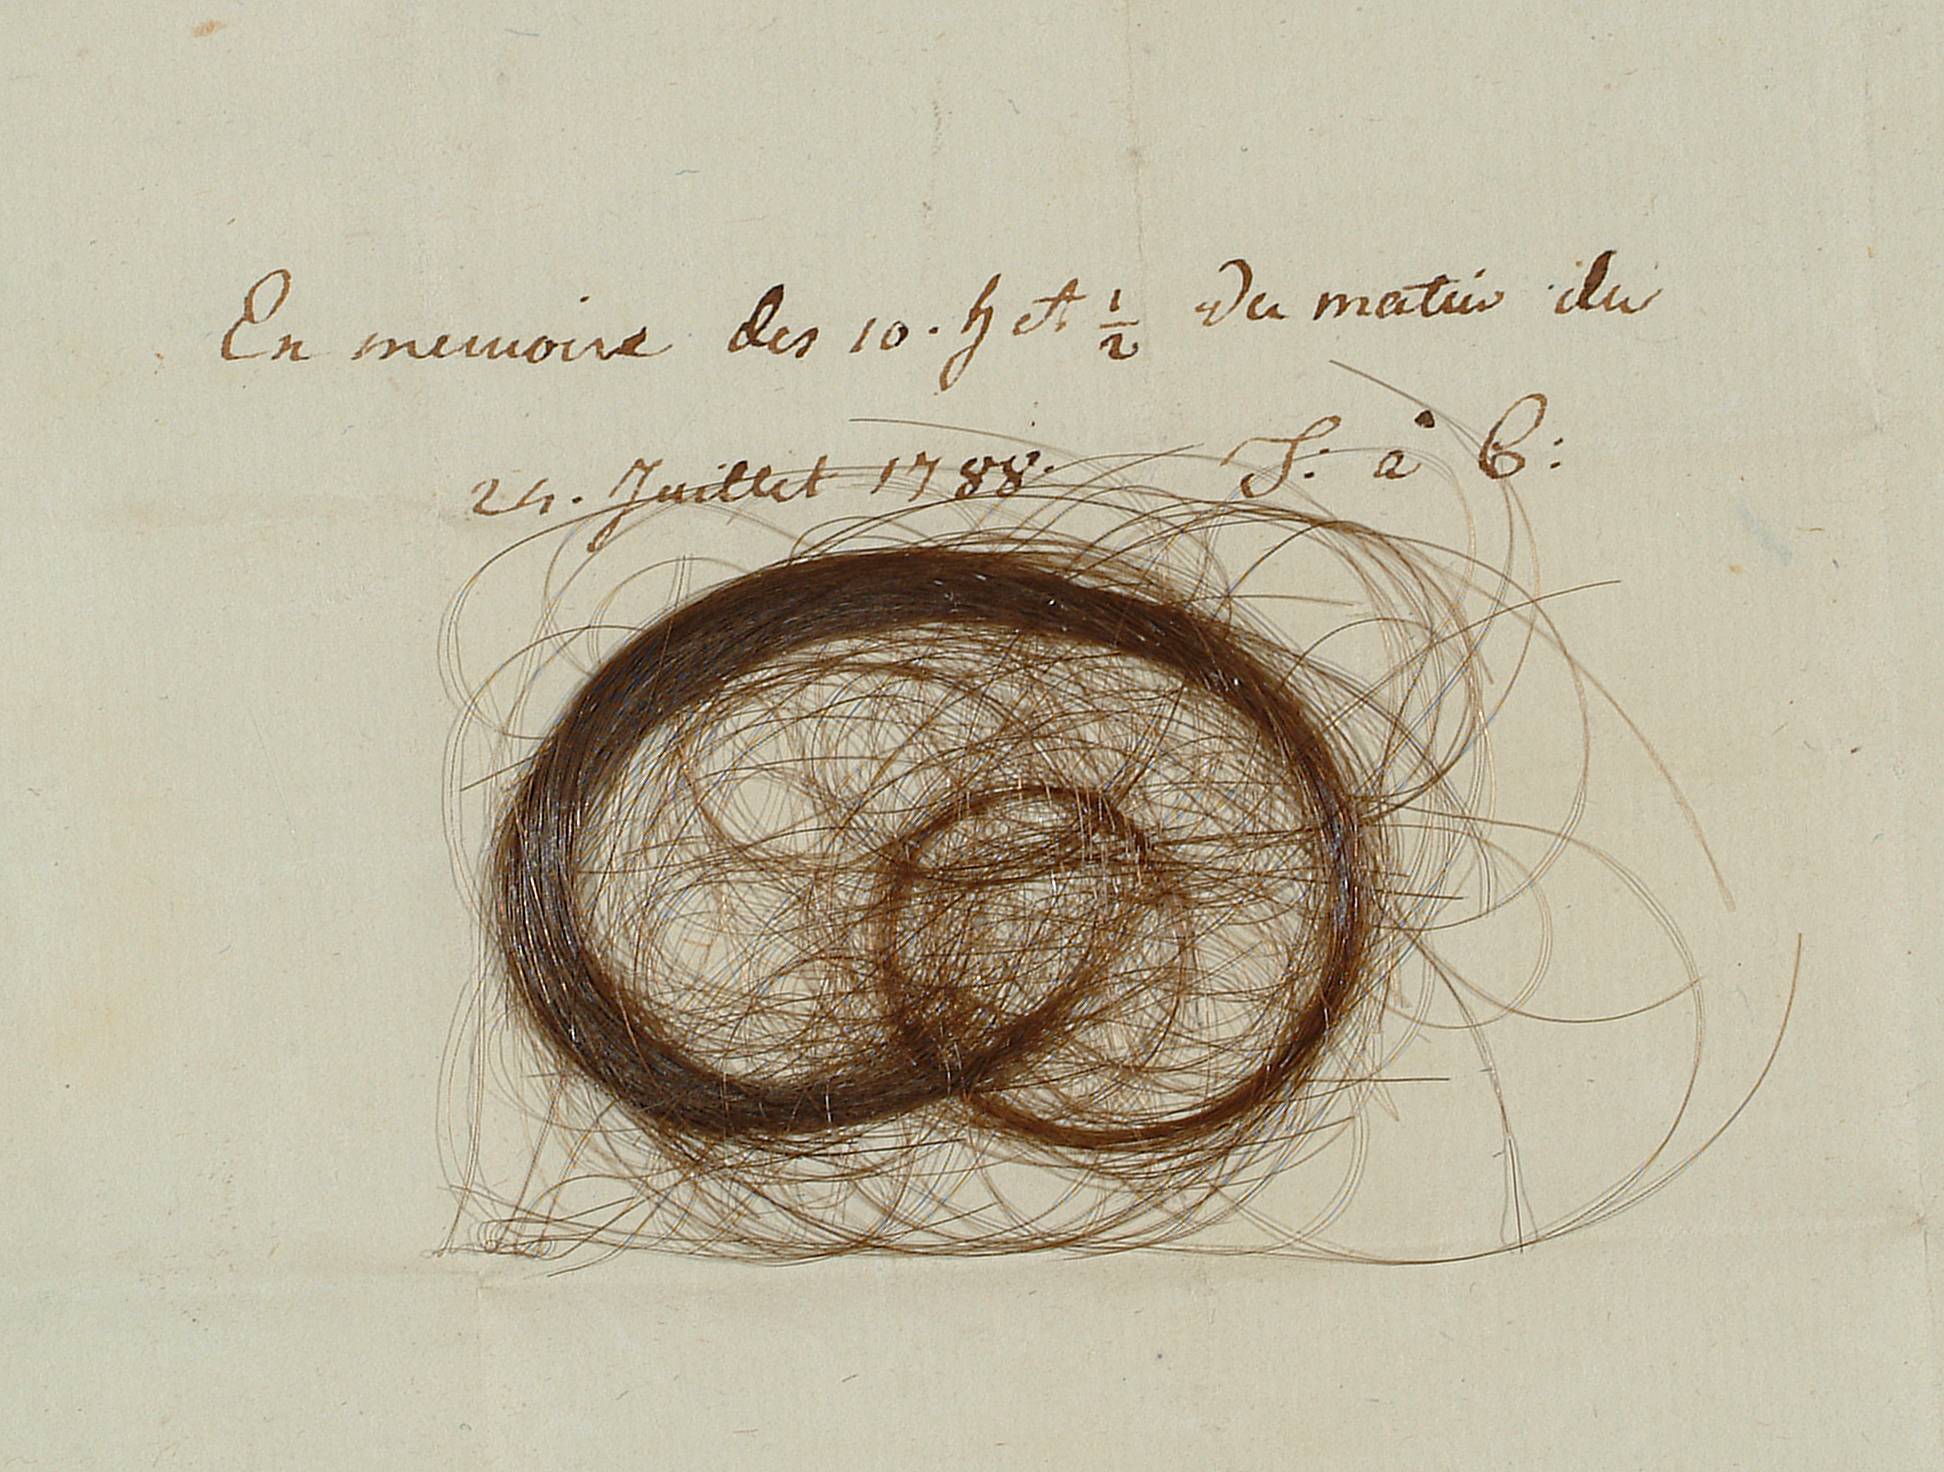 En memoire des 10. h et ½ du matin du
24. Juillet 1788. S: à C: